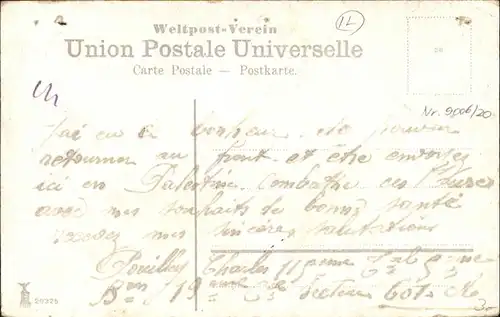 Weltpost-Verein
Union Postale Universelle
Carte Postale — Postkarte.
Nr. 9006/20
J'ai eu le bonheur de pouvoir
retourner au front et être envoyez
ici en Palestine combattre ces Turcs
avec mes souhaits de bonne santé
recevez mes sincères salutations
Charles 11 ème
19 secteur 601